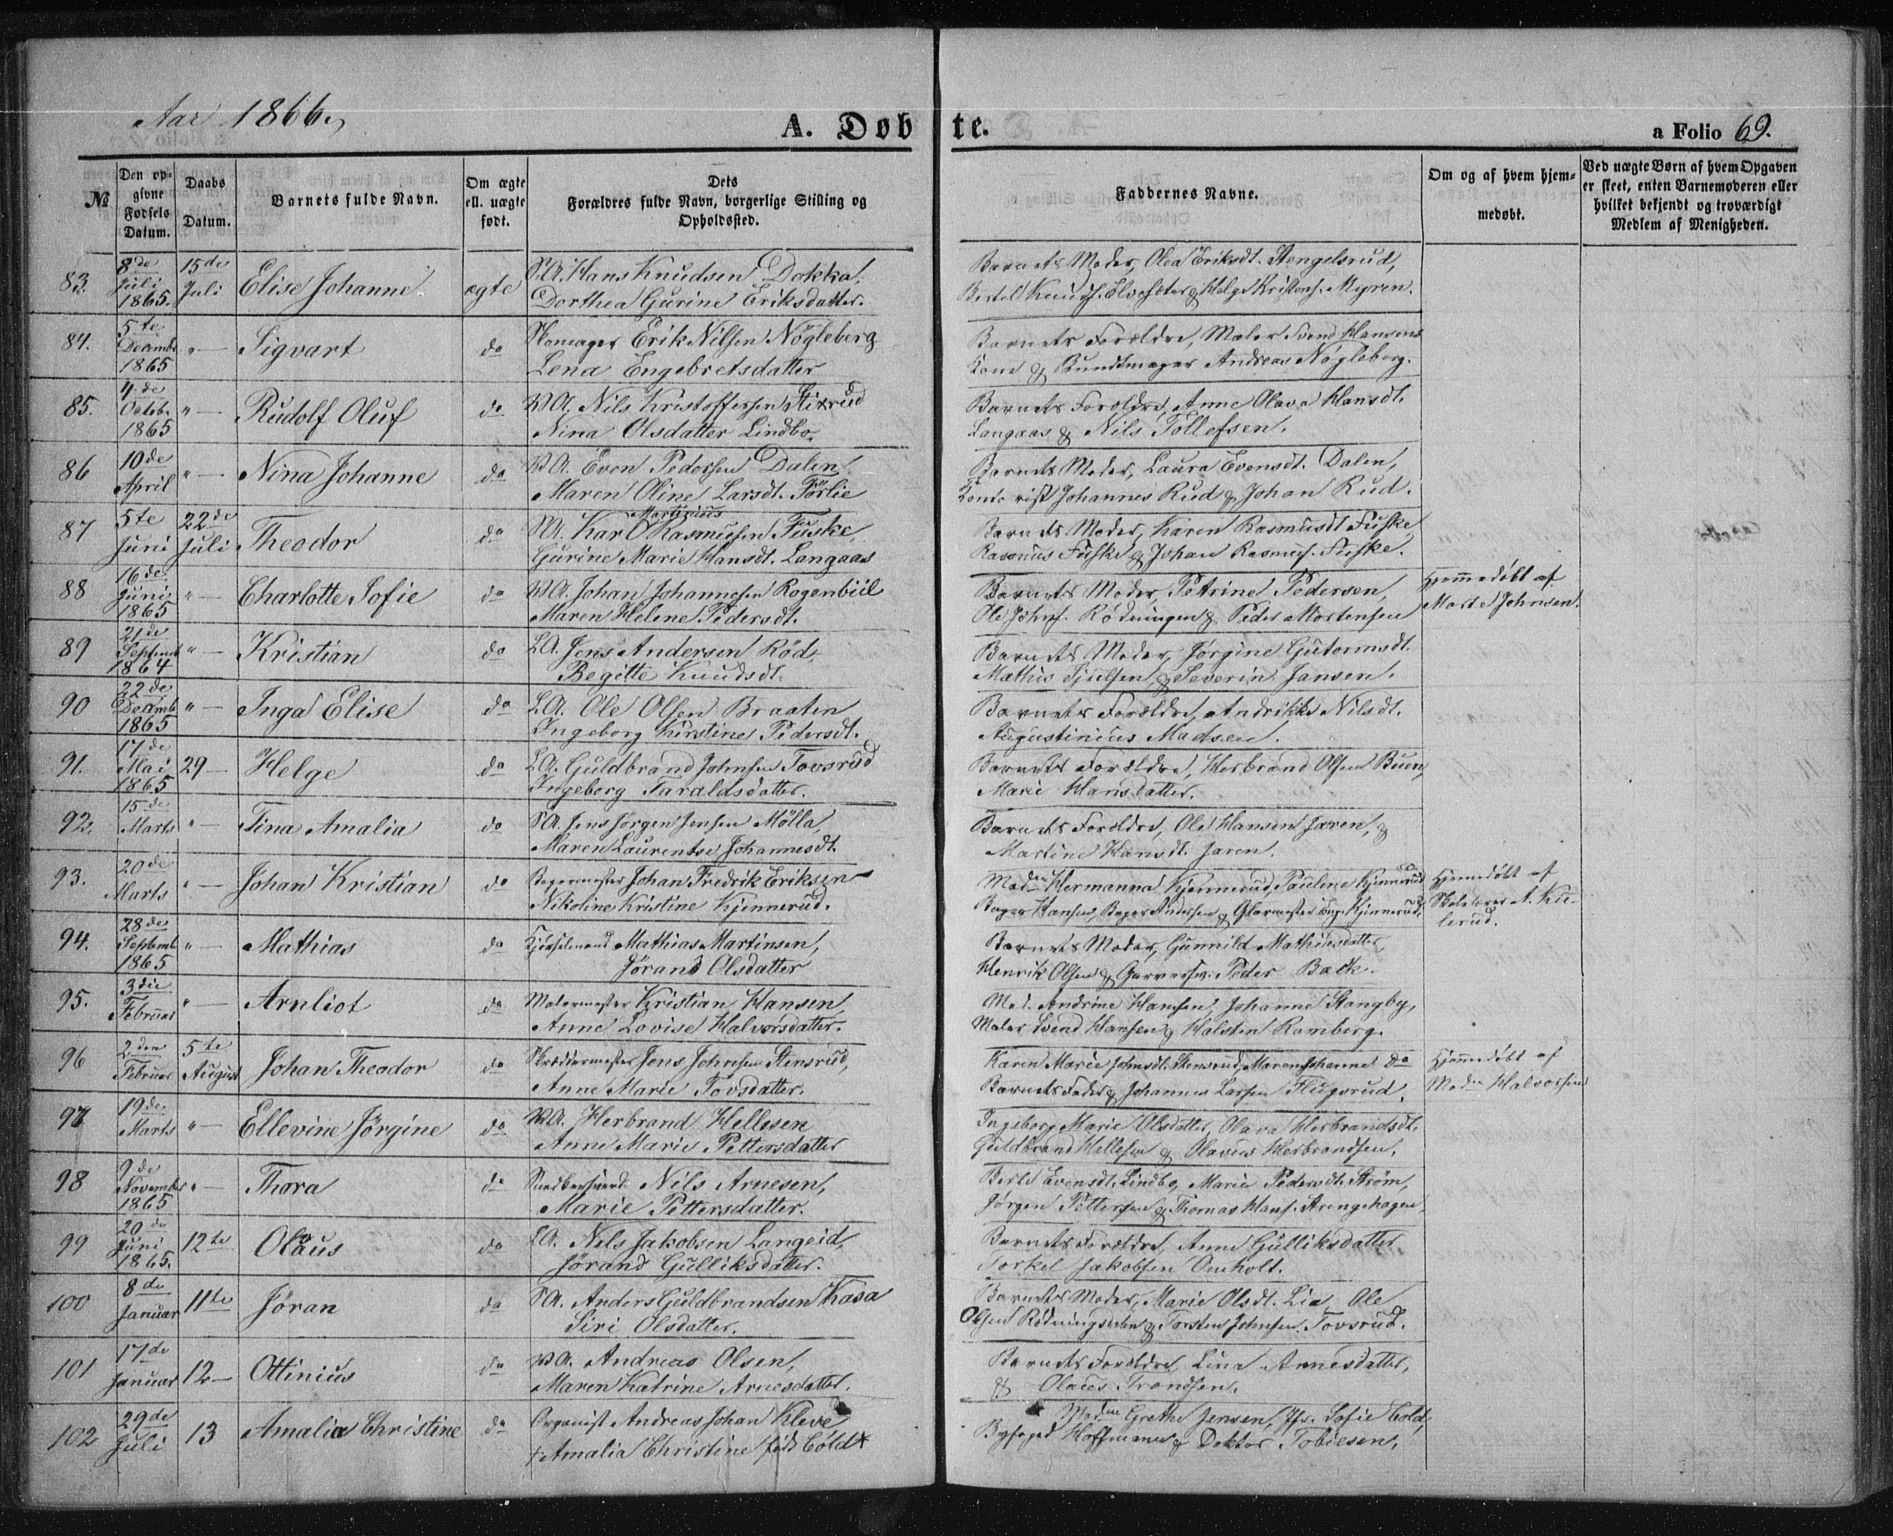 Aar 1866,
A. Døbte.
a Folio 69.
№
Den opgivne Fødsels Datum.
Daabs Datum.
Barnets fulde Navn.
Om ægte ell. uægte født.
Dets Forældres fulde Navn, borgerlige Stilling og Opholdssted.
Faddernes Navne.
Om og af hvem hjemmedøbt.
Ved uægte Børn af hvem Opgaven er skeet, enten Barnemoderen eller hvilket bekjendt og troværdigt Medlem af Menigheden.
83. 8de Juli 1865. 15de Juli Elise Johanne ægte S.A. Hans Knudsen Dokka,
Dorthea Gurine Eriksdatter.
Barnets Moder, Olea Eriksdt. Stengelsrud,
Bertel Knuds. & Helge Kristens. Myren.
84. 5te Decembr 1865 "— Sigvart do Skomager Erik Nilsen Nögleberg
Lena Engebretsdatter
Barnets Forældre, Maler Svend Hansens
Kone & Bundtmager Andreas Nögleberg.
85. 4de Octob. 1865 "— Rudolf Oluf do Nils Kristoffersen
Nina Olsdatter Lindbo.
Barnets Forældre, Anne Olava Hansdt.
Langaas & Nils Tollefsen.
86 10de April "— Nina Johanne do Even Pedersen Dalen,
Maren Oline Larsdt. Förlie
Barnets Moder, Laura Evensdt. Dalen,
Johannes Rud & Johan Rud.
87 5te Juni 22de Juli Theodor do S.A. Karl Martinius Rasmusen Fuske,
Gurine Marie Hansdt. Langaas
Barnets Moder, Karen Rasmusdt Fuske
Rasmus Fuske & Johan Rasmus. Fuske.
88 16de Juni 1865 "— Charlotte Sofie do Johan Johannesen Rogenbüil
Maren Helene Pedersdt.
Barnets Moder, Petrine Pedersen,
Ole Johns. Rödningen & Peder Mortensen
Hjemmedöbt af
Marte Johnsen.
89 21de Septemb 1864 "— Kristian do L.A. Jens Andersen Röd,
Begitte Knudsdt.
Barnets Moder, Jørgine Gutormsdt.
Mathis & Severin Jansen.
90 22de Decemb 1865 "— Inga Elise do L.A. Ole Olsen Braaten
Ingeborg Kirstine Pedersdt.
Barnets Forældre, Andrikke Nilsdt.
Augustinius Madsen.
91. 17de Mai 1865 29— Helge do L.A. Guldbrand Johnsen Tovsrud
Ingeborg Taraldsdatter.
Barnets Forældre, Herbrand Olsen Buen,
Marie Hansdatter.
92. 15de Marts "— Tina Amalia do S.A. Jens Jörgen Jensen Mölla,
Maren Laurentse Johannesdt.
Barnets Forældre, Ole Hansen Jaren, &
Martine Hansdt. Jaren.
93. 20de Marts "— Johan Kristian do Bagermester Johan Fredrik Eriksen
Nikoline Kristine Kjennerud.
Madm Hermanna Kjennerud, Pauline Kjennerud
Bager Hansen, Bager Andersen & Glarmester Kjennerud.
Hjemmedöbt af
Skolelærer A. Ku-
lerud.
94. 28de Septemb 1865 "— Mathias do Mathias Martinsen,
Jørand Olsdatter
Barnets Moder, Gunnild Mathisdatter,
Henrik Olsen & Peder Back.
95. 3die Februar "— Arnliot do Malermester Kristian Hansen,
Anne Lovise Halvorsdatter.
Mad. Andrine Hansen, Johanne Stangby,
Maler Svend Hansen & Halsten Ramberg.
96 2den Februar 5te August Johan Theodor do Skræddermester Jens Johnsen Stensrud,
Anne Marie Tovsdatter.
Karen Marie Johnsdt. Stensrud, Maren Johanne do
Barnets Fader & Johannes Larsen Flugsrud.
Hjemmedöbt af
Madm Halvorsen
97 19de Marts "— Ellevine Jørgine do Herbrand Hellesen
Anne Marie Pettersdatter
Ingeborg Marie Olsdatter, Olava Herbrandsdt.
Guldbrand Hellesen & Olavus Herbrandsen.
98 9de November 1865 "— Thora do Nils Arnesen,
Marie Pettersdatter.
Evensdt. Lindbo, Marie Pedersdt. Ström,
Jörgen Pettersen & Thomas Hans. Strengehagen
99 20de Juni 1865. 12te Olaus do L.A. Nils Jakobsen Langeid,
Jørand Gulliksdatter.
Barnets Forældre, Anne Gulliksdatter
Torkel Jakobsen Omholt.
100 8de Januar 11te Jöran do S.A. Anders Guldbrandsen Kasa
Siri Olsdatter.
Barnets Moder, Marie Olsdt. Lia, Ole
Olsen & Torsten Johnsen Tovsrud.
101 17de Januar 12— Ottinius do Andreas Olsen,
Maren Katrine Arnesdatter.
Barnets Forældre, Lina Arnesdatter,
& Olaus Trondsen.
102 29de Juli 13 Amalia Christine do Organist Andreas Johan Kleve
Amalia Christine född Cold
Madm Grethe Jensen, Jfr. Sofie Cold,
Byfoged Hoffmann & Doktor Tobiesen.